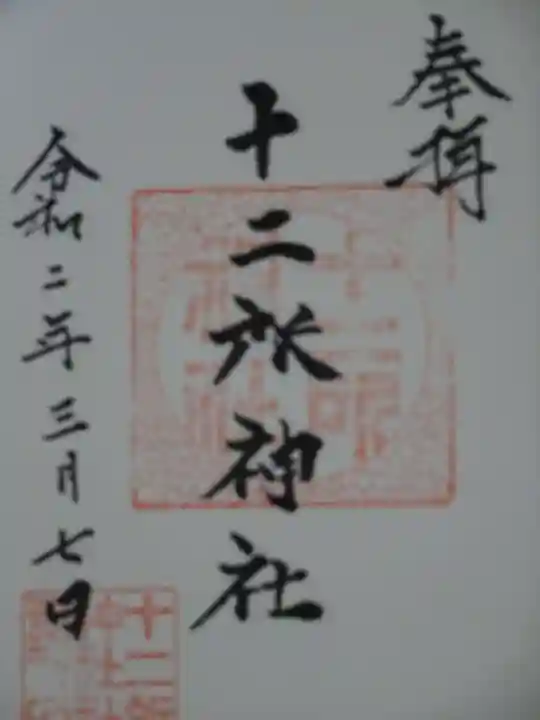 奉拝
十二所神社
令和二年三月七日
十二所
神社